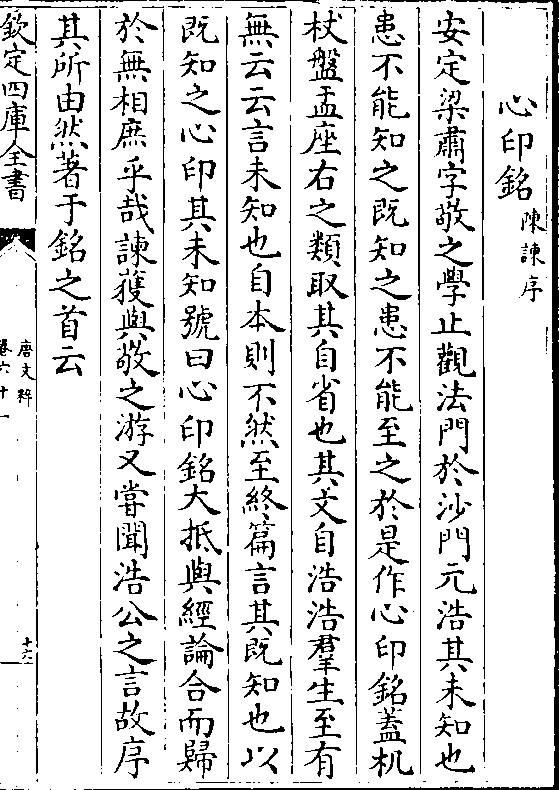 心印銘 陳諫序
安定梁肅字敬之學止觀法門於沙門元浩其未知也
患不能知之既知之患不能至之於是作心印銘蓋机
杖盤盂座右之類取其自省也其文自浩浩羣生至有
無云云言未知也自本則不然至終篇言其既知也以
既知之心印其未知號曰心印銘大抵與經論合而歸
於無相庶乎哉諫獲與敬之游又嘗聞浩公之言故序
其所由然著于銘之首云
欽定四庫全書
唐文粹
卷六十一
十六